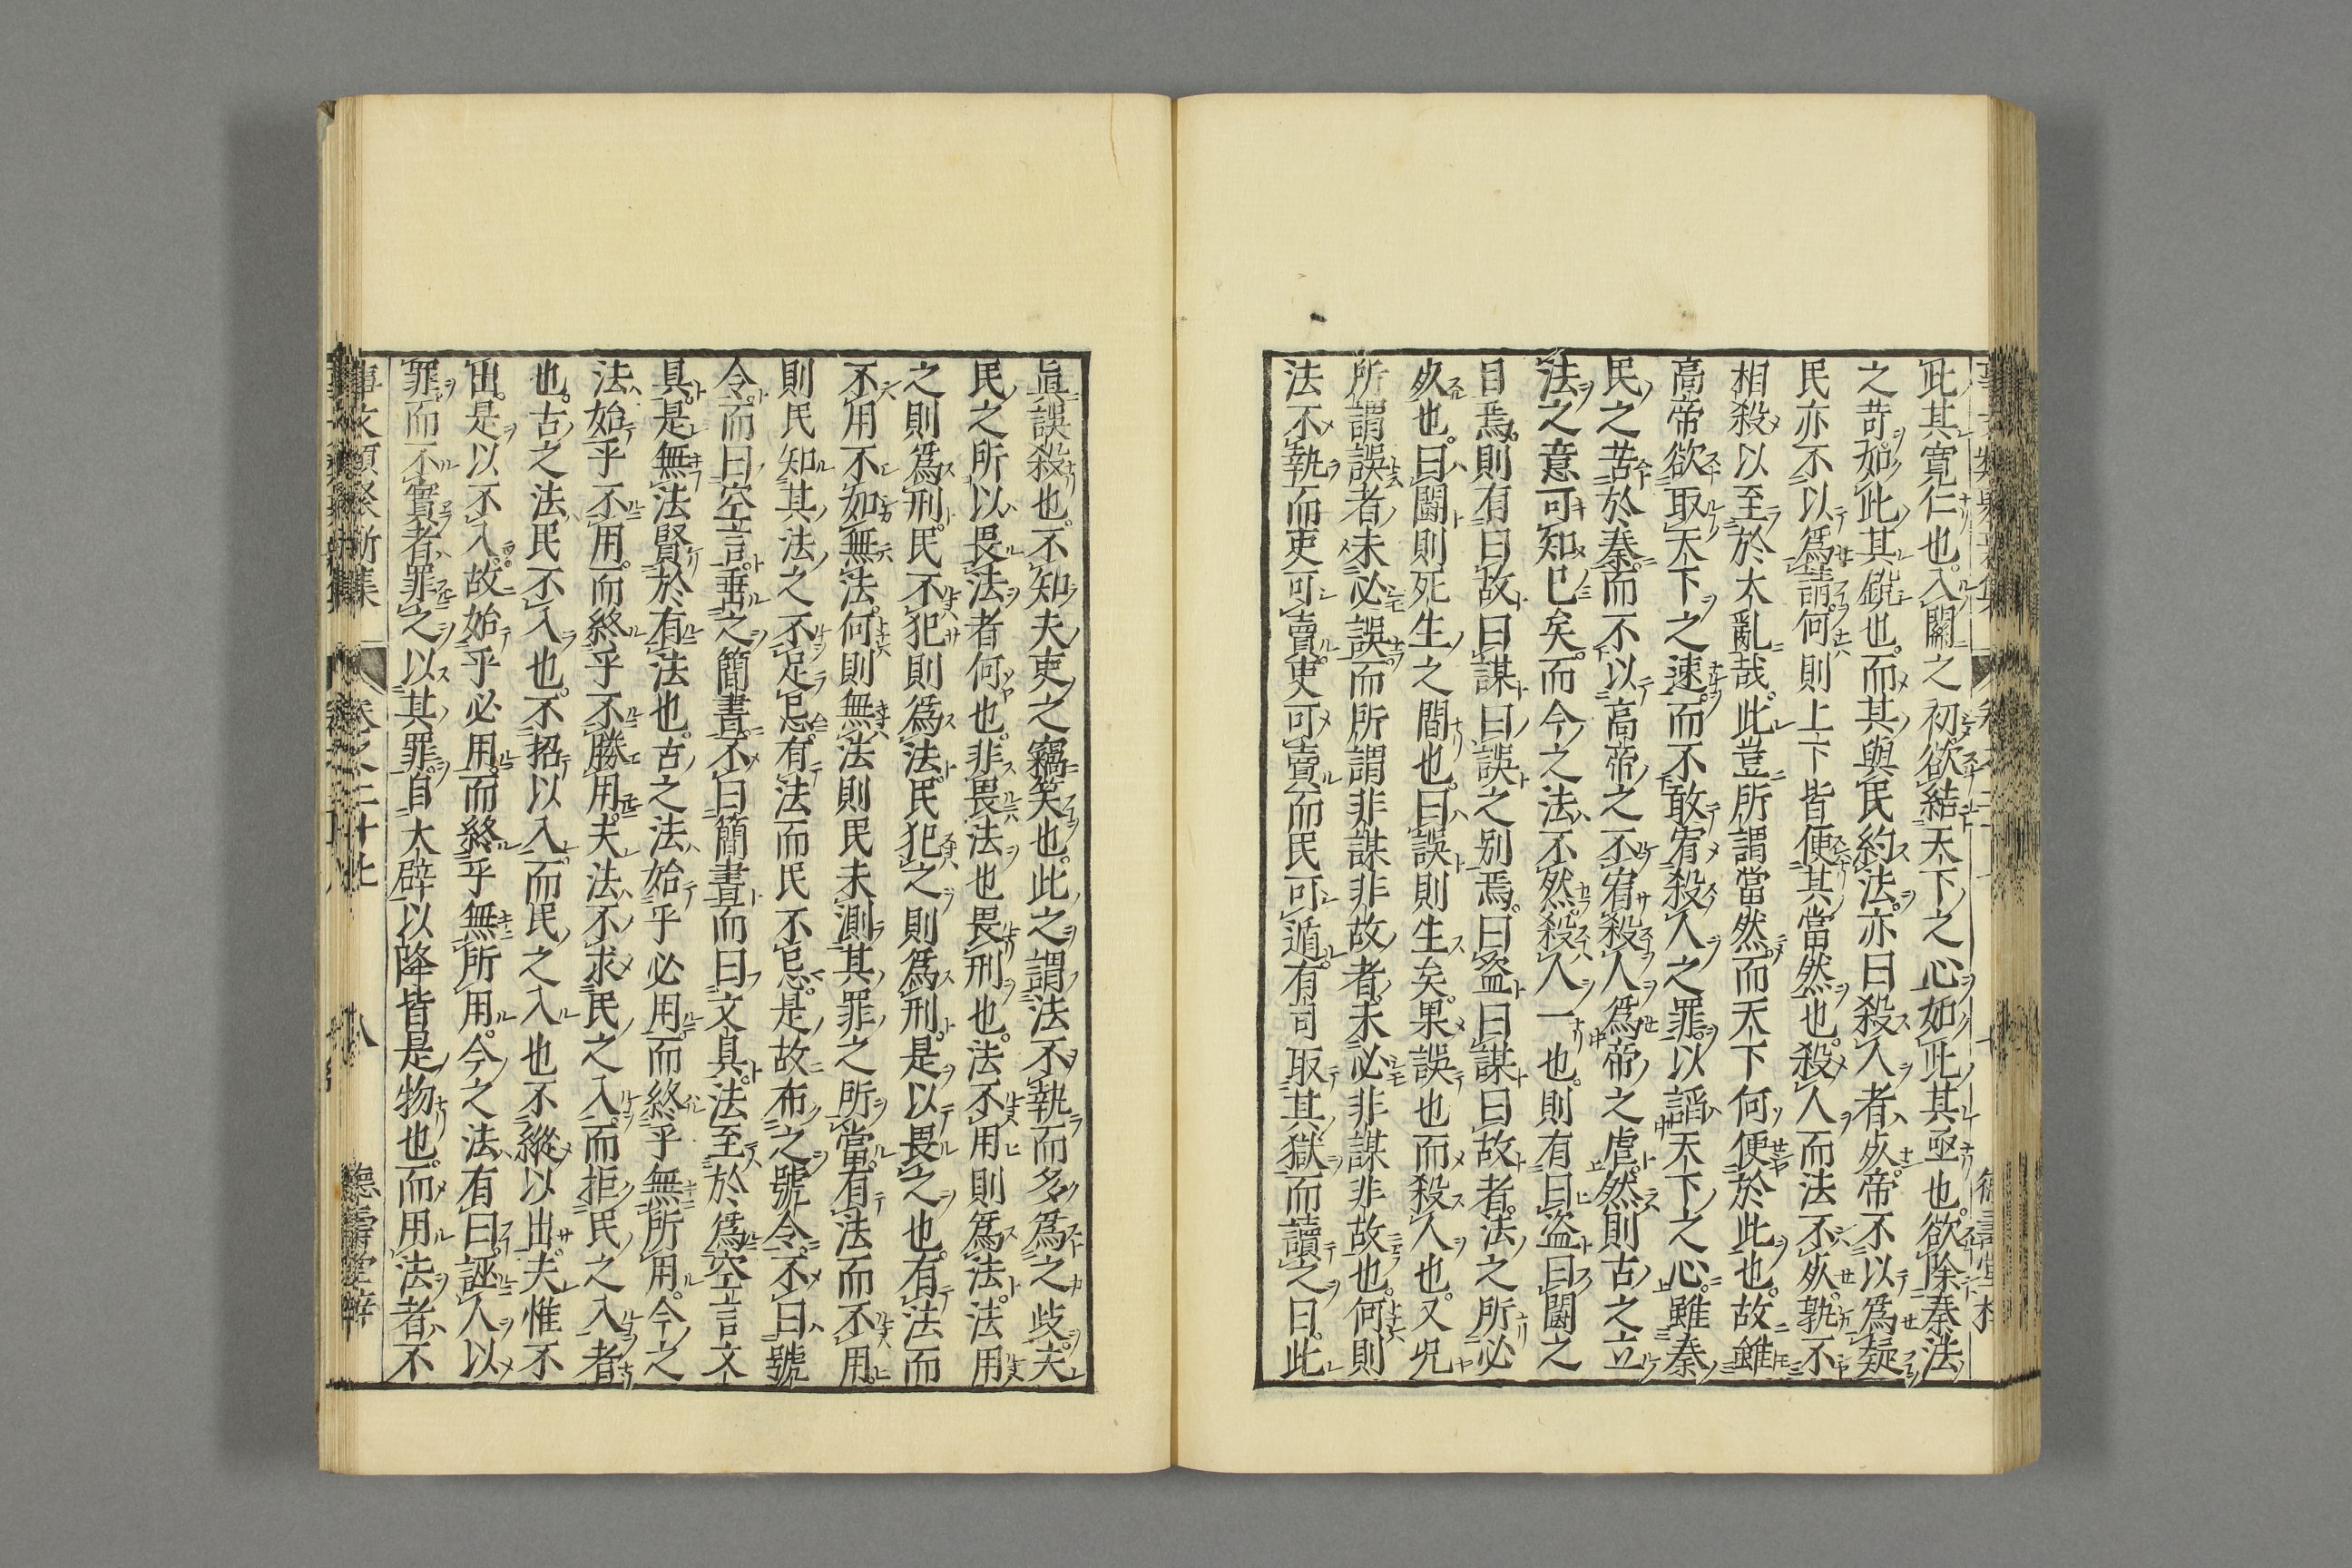 此其寛仁也入關之初欲結天下之心如此其亟也欲除秦法
之苛如此其銳也而其與民約法亦曰殺人者死帝不以爲疑
民亦不以爲請何則上下皆便其當然也殺人而法不死孰不
相殺以至於大亂哉此豈所謂當然而天下何便於此也故雖
高帝欲取天下之速而不敢宥殺人之罪以謟天下之心雖秦
民之苦於秦而不以高帝之不宥殺人爲帝之虐然則古之立
法之意可知已矣而今之法不然殺人一也則有曰盜曰鬪之
目焉則有曰故曰謀曰誤之別焉曰盜曰謀曰故者法之所必
死也曰鬪則死生之間也曰誤則生矣果誤也而殺人也又况
所謂誤者未必誤而所謂非謀非故者未必非謀非故也何則
法不執而吏可賣吏可賣而民可遁有司取其獄而讀之曰此
眞誤殺也不知夫吏之竊笑也此之謂法不執而多爲之歧夫
民之所以畏法者何也非畏法也畏刑也法不用則爲法法用
之則爲刑民不犯則爲法民犯之則爲刑是以畏之也有法而
不用不如無法何則無法則民未測其罪之所當有法而不用
則民知其法之不足忌有法而民不忌是故布之號令不曰號
令而曰空言垂之簡書不曰簡書而曰文具法至於爲空言文
具是無法賢於有法也古之法始乎必用而終乎無所用今之
法始乎不用而終乎不勝用夫法不求民之入而拒民之入者
也古之法民不入也不招以入而民之入也不縱以出夫惟不
出是以不入故始乎必用而終乎無所用今之法有曰誣人以
罪而不實者罪之以其罪自大辟以降皆是物也而用法者不
事文類聚新集 卷之二十七 八 德壽堂梓